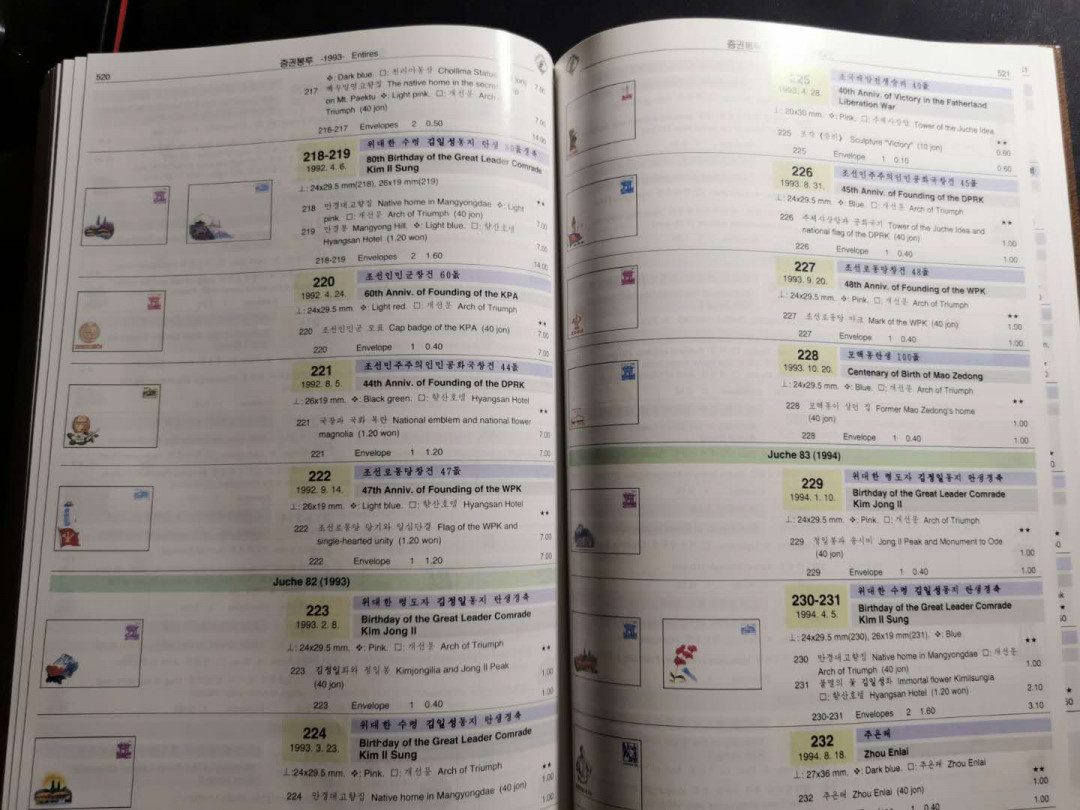 520
증권봉투 -1993- Entires
❖: Dark blue. □: 천리마동상 Chollima Statue
217 The native home in the secret
on Mt. Paektu ❖: Light pink. □: 개선문 Arch
Triumph (40 jon)
7.00
216-217 Envelopes 2 0.50
14.00
218-219
1992. 4. 6.
위대한 수령 김일성동지 탄생 80돐경축
80th Birthday of the Great Leader Comrade
Kim Il Sung
⊥: 24x29.5 mm(218), 26x19 mm(219)
★★
218 만경대고향집 Native home in Mangyongdae ❖: Light
pink. □: 개선문 Arch of Triumph (40 jon)
7.00
219 만경봉 Mangyong Hill. ❖: Light blue. □: 향산호텔
Hyangsan Hotel (1.20 won)
7.00
218-219 Envelopes 2 1.60
14.00
220
1992. 4. 24.
조선인민군창건 60돐
60th Anniv. of Founding of the KPA
⊥: 24x29.5 mm. ❖: Light red. □: 개선문 Arch of Triumph
★★
220 조선인민군 모표 Cap badge of the KPA (40 jon)
7.00
220 Envelope 1 0.40
7.00
221
1992. 8. 5.
조선민주주의인민공화국창건 44돐
44th Anniv. of Founding of the DPRK
⊥: 26x19 mm. ❖: Black green. □: 향산호텔 Hyangsan Hotel
★★
221 국장과 국화 목란 National emblem and national flower
magnolia (1.20 won)
7.00
221 Envelope 1 1.20
7.00
222
1992. 9. 14.
조선로동당창건 47돐
47th Anniv. of Founding of the WPK
⊥: 26x19 mm. ❖: Light blue. □: 향산호텔 Hyangsan Hotel
★★
222 조선로동당 당기와 일심단결 Flag of the WPK and
single-hearted unity (1.20 won)
7.00
222 Envelope 1 1.20
7.00
Juche 82 (1993)
223
1993. 2. 8.
위대한 령도자 김정일동지 탄생경축
Birthday of the Great Leader Comrade
Kim Jong Il
⊥: 24x29.5 mm. ❖: Pink. □: 개선문 Arch of Triumph
★★
223 김정일화와 정일봉 Kimjongilia and Jong Il Peak
(40 jon)
1.00
223 Envelope 1 0.40
1.00
224
1993. 3. 23.
위대한 수령 김일성동지 탄생경축
Birthday of the Great Leader Comrade
Kim Il Sung
⊥: 24x29.5 mm. ❖: Pink. □: 개선문 Arch of Triumph
★★
224 만경대고향집 Native home in Mangyongdae (40 jon)
1.00
1.00
증권봉투
521
225
1993. 4. 28.
조국해방전쟁승리 40돐
40th Anniv. of Victory in the Fatherland
Liberation War
⊥: 20x30 mm. ❖: Pink. □: 주체사상탑 Tower of the Juche Idea
★★
225 조각 《승리》 Sculpture "Victory" (10 jon)
0.60
225 Envelope 1 0.10
0.60
226
1993. 8. 31.
조선민주주의인민공화국창건 45돐
45th Anniv. of Founding of the DPRK
⊥: 24x29.5 mm. ❖: Blue. □: 개선문 Arch of Triumph
★★
226 주체사상탑과 공화국기 Tower of the Juche Idea and
national flag of the DPRK (40 jon)
1.00
226 Envelope 1 0.40
1.00
227
1993. 9. 20.
조선로동당창건 48돐
48th Anniv. of Founding of the WPK
⊥: 24x29.5 mm. ❖: Pink. □: 개선문 Arch of Triumph
★★
227 조선로동당 마크 Mark of the WPK (40 jon)
1.00
227 Envelope 1 0.40
1.00
228
1993. 10. 20.
모택동탄생 100돐
Centenary of Birth of Mao Zedong
⊥: 24x29.5 mm. ❖: Blue. □: 개선문 Arch of Triumph
★★
228 모택동이 살던 집 Former Mao Zedong's home
(40 jon)
1.00
228 Envelope 1 0.40
1.00
Juche 83 (1994)
229
1994. 1. 10.
위대한 령도자 김정일동지 탄생경축
Birthday of the Great Leader Comrade
Kim Jong Il
⊥: 24x29.5 mm. ❖: Pink. □: 개선문 Arch of Triumph
★★
229 정일봉과 송시비 Jong Il Peak and Monument to Ode
(40 jon)
1.00
229 Envelope 1 0.40
1.00
230-231
1994. 4. 5.
위대한 수령 김일성동지 탄생경축
Birthday of the Great Leader Comrade
Kim Il Sung
⊥: 24x29.5 mm(230), 26x19 mm(231). ❖: Blue
★★
230 만경대고향집 Native home in Mangyongdae □: 개선문
Arch of Triumph (40 jon)
1.00
231 불멸의 꽃 김일성화 Immortal flower Kimilsungia
□: 향산호텔 Hyangsan Hotel (1.20 won)
2.10
230-231 Envelopes 2 1.60
3.10
232
1994. 8. 18.
주은래
Zhou Enlai
⊥: 27x36 mm. ❖: Dark blue. □: 주은래 Zhou Enlai
★★
232 주은래 Zhou Enlai (40 jon)
1.00
Envelope 1 0.40
1.00